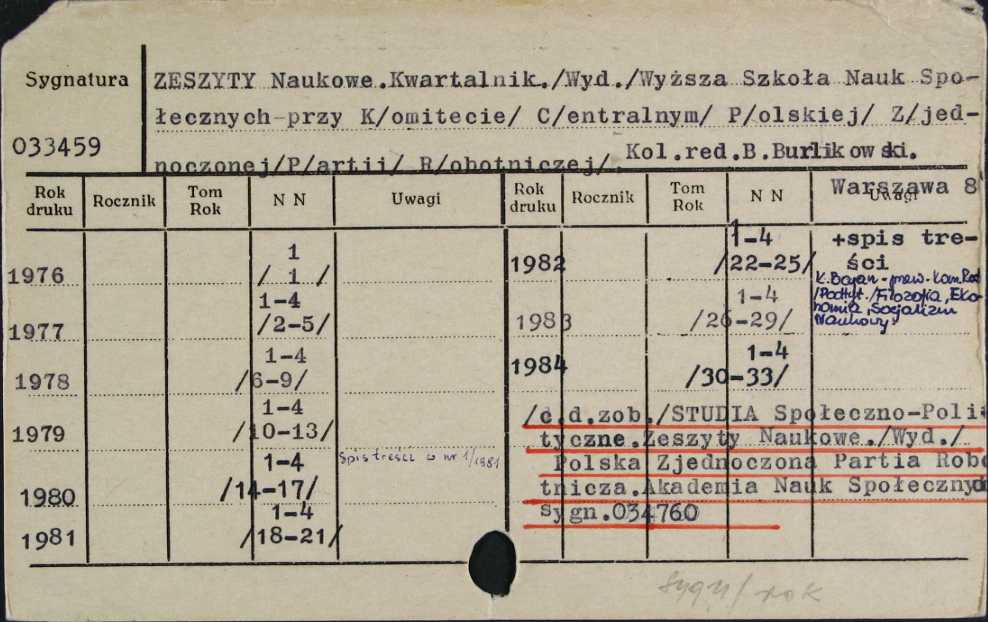 Sygnatura
033459
ZESZYTY Naukowe.Kwartalnik./Wyd./Wyższa Szkoła Nauk Spo-
łecznych-przy K/omitecie/ C/entralnym/ P/olskiej/ Z/jed-
noczonej/P/artii/ R/obotniczej/. Kol.red.B.Burlikowski.
Warszawa 8
Rok druku Rocznik Tom Rok N N Uwagi Rok druku Rocznik Tom Rok N N Uwagi
1976 1
/ 1 /
1977 1-4
/2-5/
1978 1-4
/6-9/
1979 1-4
/10-13/
1980 1-4 Spis treści w nr 1/1981
/14-17/
1981 1-4
/18-21/
1982 1-4 +spis tre-
/22-25/ ści
K.Bajan - przew. Kom.Red
/Podtyt./Filozofia, Eko-
nomia, Socjalizm
Naukowy/
1983 1-4
/26-29/
1984 1-4
/30-33/
/c.d.zob./STUDIA Społeczno-Poli
tyczne.Zeszyty Naukowe./Wyd./
Polska Zjednoczona Partia Robo
tnicza.Akademia Nauk Społecznyc
sygn.034760
rok